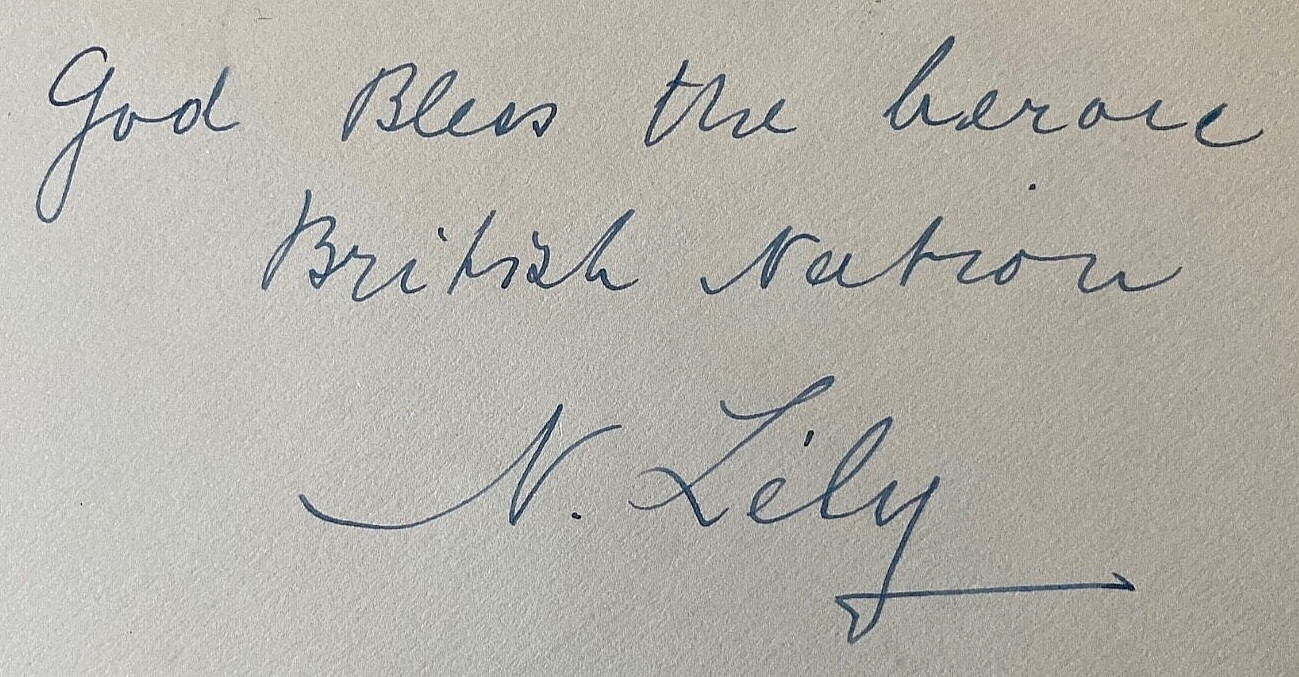 God Bless the heroic
British Nation
N. Lély